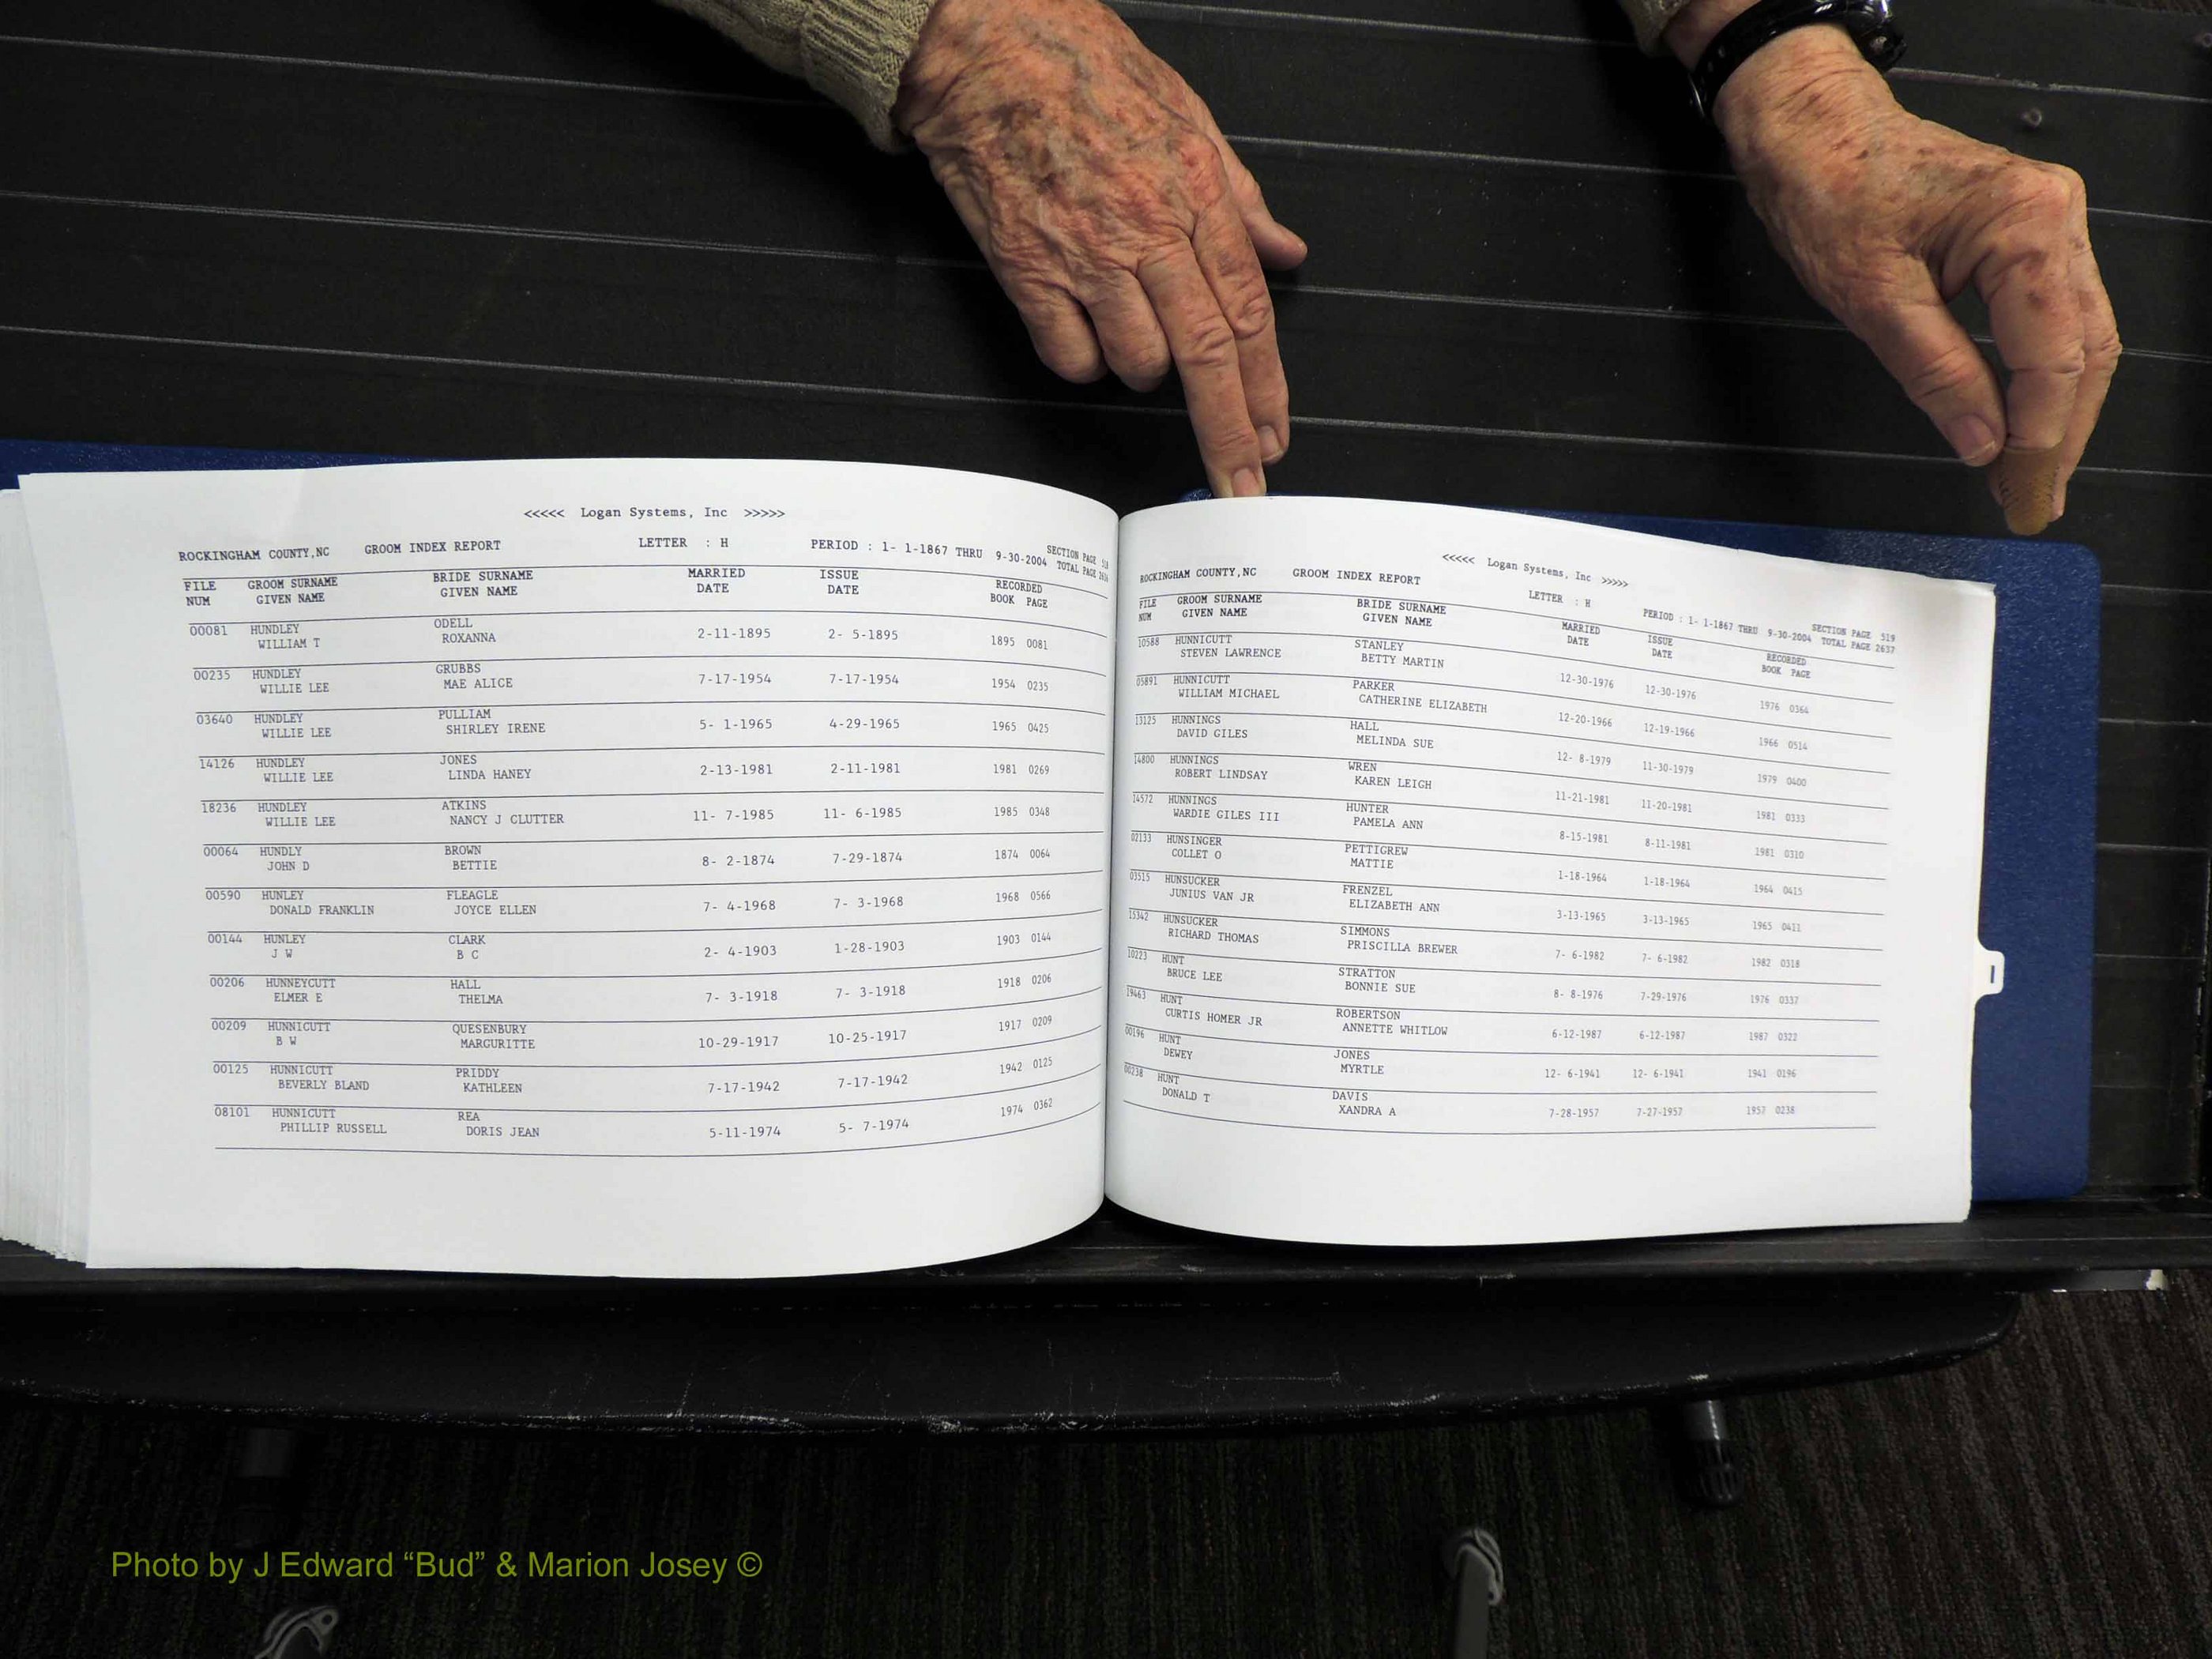 <<<<< Logan Systems, Inc >>>>>
ROCKINGHAM COUNTY,NC GROOM INDEX REPORT LETTER : H PERIOD : 1- 1-1867 THRU 9-30-2004 SECTION PAGE
TOTAL PAGE
FILE GROOM SURNAME BRIDE SURNAME MARRIED ISSUE RECORDED
NUM GIVEN NAME GIVEN NAME DATE DATE BOOK PAGE
00081 HUNDLEY ODELL 2-11-1895 2- 5-1895 1895 0081
WILLIAM T ROXANNA
00235 HUNDLEY GRUBBS 7-17-1954 7-17-1954 1954 0235
WILLIE LEE MAE ALICE
03640 HUNDLEY PULLIAM 5- 1-1965 4-29-1965 1965 0425
WILLIE LEE SHIRLEY IRENE
14126 HUNDLEY JONES 2-13-1981 2-11-1981 1981 0269
WILLIE LEE LINDA HANEY
18236 HUNDLEY ATKINS 11- 7-1985 11- 6-1985 1985 0348
WILLIE LEE NANCY J CLUTTER
00064 HUNDLY BROWN 8- 2-1874 7-29-1874 1874 0064
JOHN D BETTIE
00590 HUNLEY FLEAGLE 7- 4-1968 7- 3-1968 1968 0566
DONALD FRANKLIN JOYCE ELLEN
00144 HUNLEY CLARK 2- 4-1903 1-28-1903 1903 0144
J W B C
00206 HUNNEYCUTT HALL 7- 3-1918 7- 3-1918 1918 0206
ELMER E THELMA
00209 HUNNICUTT QUESENBURY 10-29-1917 10-25-1917 1917 0209
B W MARGURITTE
00125 HUNNICUTT PRIDDY 7-17-1942 7-17-1942 1942 0125
BEVERLY BLAND KATHLEEN
08101 HUNNICUTT REA 5-11-1974 5- 7-1974 1974 0362
PHILLIP RUSSELL DORIS JEAN
<<<<< Logan Systems, Inc >>>>>
ROCKINGHAM COUNTY,NC GROOM INDEX REPORT LETTER : H PERIOD : 1- 1-1867 THRU 9-30-2004 SECTION PAGE 519
TOTAL PAGE 2637
FILE GROOM SURNAME BRIDE SURNAME MARRIED ISSUE RECORDED
NUM GIVEN NAME GIVEN NAME DATE DATE BOOK PAGE
10588 HUNNICUTT STANLEY 12-30-1976 12-30-1976 1976 0364
STEVEN LAWRENCE BETTY MARTIN
05891 HUNNICUTT PARKER 12-20-1966 12-19-1966 1966 0514
WILLIAM MICHAEL CATHERINE ELIZABETH
13125 HUNNINGS HALL 12- 8-1979 11-30-1979 1979 0400
DAVID GILES MELINDA SUE
14800 HUNNINGS WREN 11-21-1981 11-20-1981 1981 0333
ROBERT LINDSAY KAREN LEIGH
14572 HUNNINGS HUNTER 8-15-1981 8-11-1981 1981 0310
WARDIE GILES III PAMELA ANN
02133 HUNSINGER PETTIGREW 1-18-1964 1-18-1964 1964 0415
COLLET O MATTIE
03515 HUNSUCKER FRENZEL 3-13-1965 3-13-1965 1965 0411
JUNIUS VAN JR ELIZABETH ANN
15342 HUNSUCKER SIMMONS 7- 6-1982 7- 6-1982 1982 0318
RICHARD THOMAS PRISCILLA BREWER
10223 HUNT STRATTON 8- 8-1976 7-29-1976 1976 0337
BRUCE LEE BONNIE SUE
19463 HUNT ROBERTSON 6-12-1987 6-12-1987 1987 0322
CURTIS HOMER JR ANNETTE WHITLOW
00196 HUNT JONES 12- 6-1941 12- 6-1941 1941 0196
DEWEY MYRTLE
00238 HUNT DAVIS 7-28-1957 7-27-1957 1957 0238
DONALD T XANDRA A
I
Photo by J Edward “Bud” & Marion Josey ©